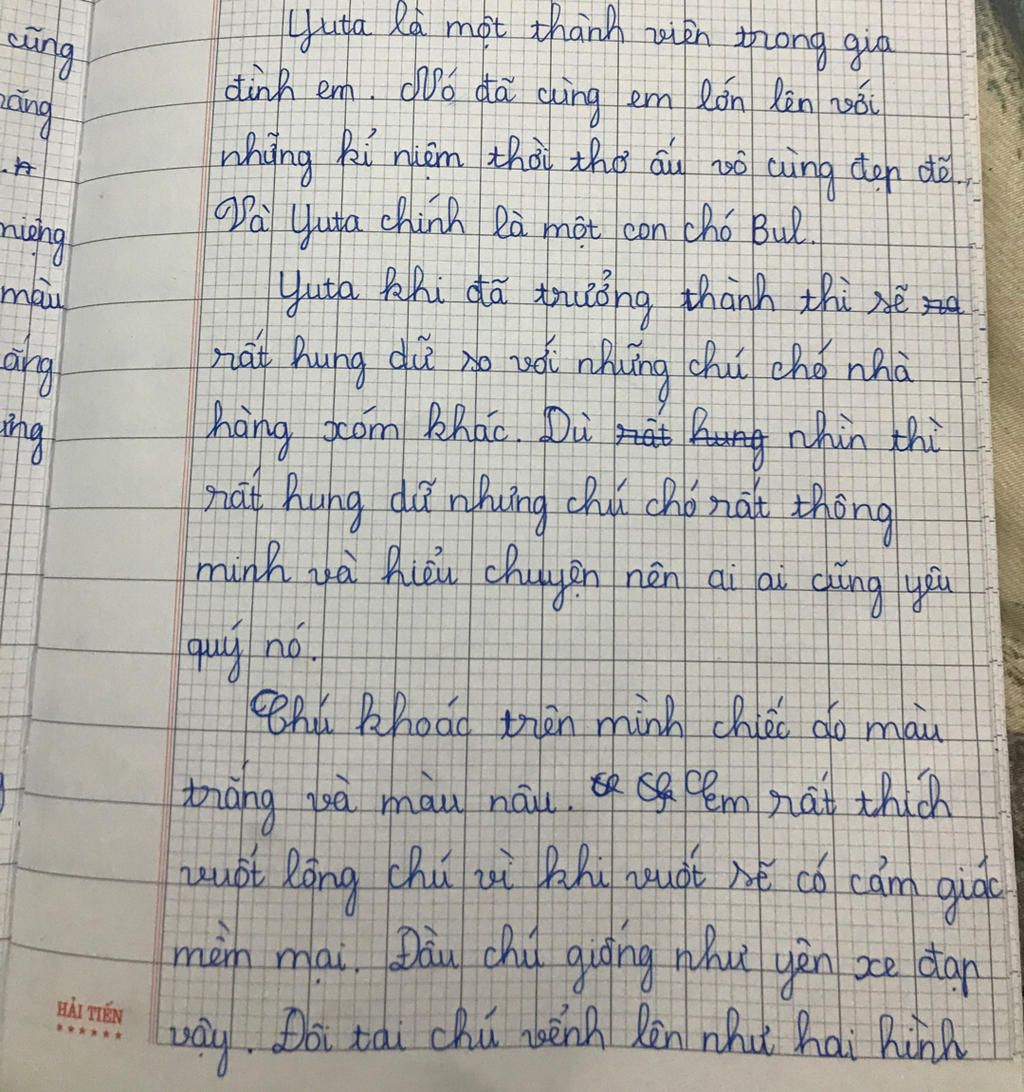 cũng
răng
niệng
màu
Yuta là một thành viên trong gia
đình em. Nó đã cùng em lớn lên với
những kỉ niệm thời thơ ấu vô cùng đẹp đẽ.
Và Yuta chính là một con chó Bul.
Yuta khi đã trưởng thành thì sẽ ra
rất hung dữ so với những chú chó nhà
hàng xóm khác. Dù rất hung nhìn thì
rất hung dữ nhưng chú chó rất thông
minh và hiểu chuyện nên ai ai cũng yêu
quý nó.
Chú khoác trên mình chiếc áo màu
trắng và màu nâu. Em rất thích
vuốt lông chú vì khi vuốt sẽ có cảm giác
mềm mại. Đầu chú giống như yên xe đạp
vậy. Đôi tai chú vểnh lên như hai hình
HẢI TIẾN